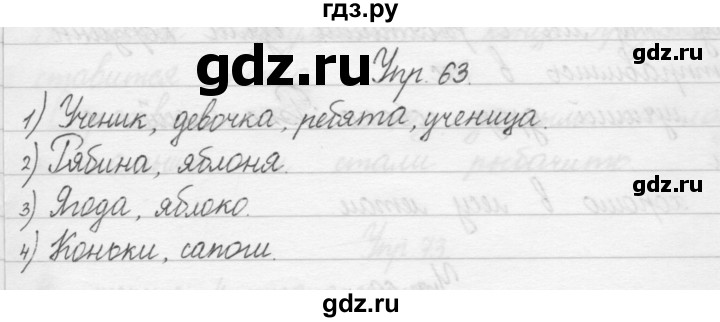 гдз.ру
gdz.ru
Упр. 63.
gdz.ru
1) Ученик, девочка, ребята, ученица.
2) Рябина, яблоня.
gdz.ru
3) Ягода, яблоко.
4) Коньки, сапоги.
gdz.ru